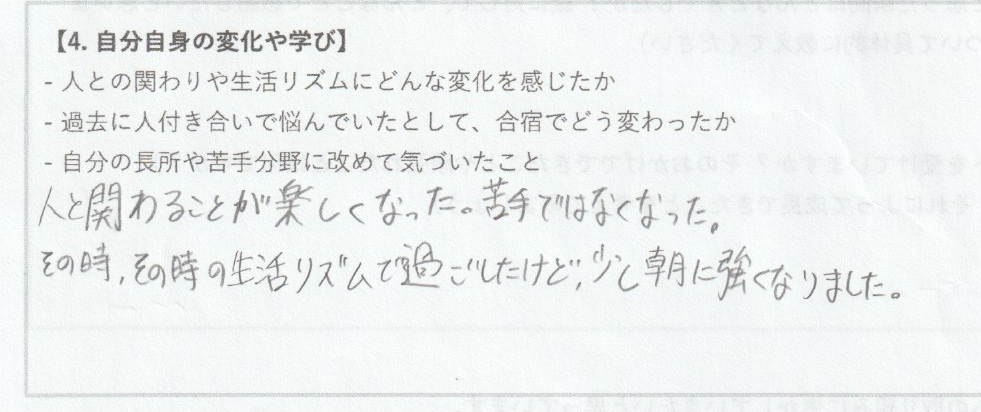 【4. 自分自身の変化や学び】
- 人との関わりや生活リズムにどんな変化を感じたか
- 過去に人付き合いで悩んでいたとして、合宿でどう変わったか
- 自分の長所や苦手分野に改めて気づいたこと
人と関わることが楽しくなった。苦手ではなくなった。
その時,その時の生活リズムで過ごしたけど,少し朝に強くなりました。